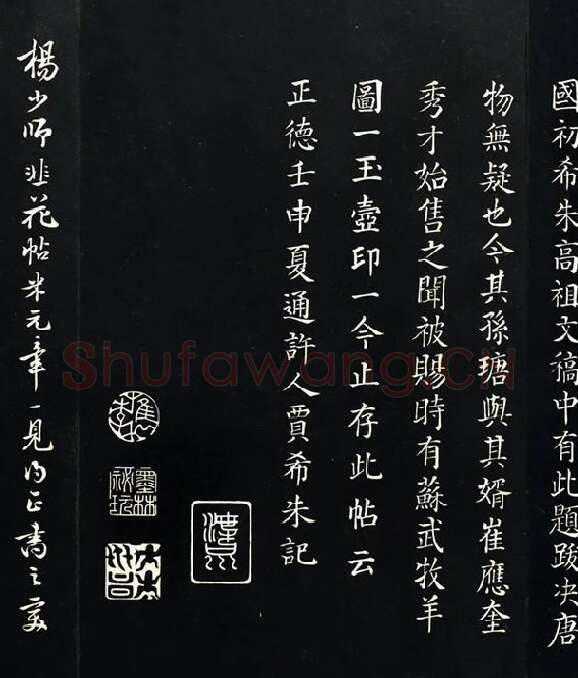 國初希朱高祖文稿中有此題跋决唐
物無疑也今其孫瑭與其婿崔應奎
秀才始售之聞被賜時有蘇武牧羊
圖一玉壺印一今止存此帖云
正德壬申夏通許人賈希朱記
楊少師韭花帖米元章一見得正書之
Shufawang.CN